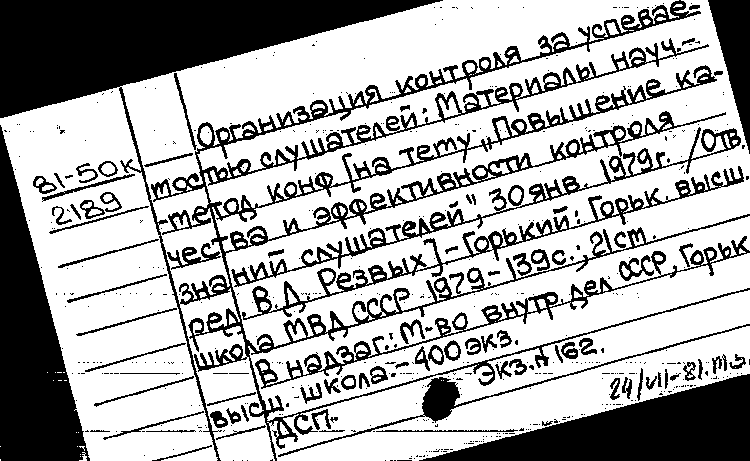 81-50к
2189
Организация контроля за успевае-
мостью слушателей: Материалы науч.-
-метод. конф. [на тему „Повышение ка-
чества и эффективности контроля
знаний слушателей", 30 янв. 1979г. /Отв.
ред. В.Д. Резвых] - Горький: Горьк. высш.
школа МВД СССР, 1979.- 139с.; 21см.
В надзаг.: М-во внутр. дел СССР, Горьк.
высш. школа.- 400экз.
ДСП.
Экз. № 162.
24/VII-81.